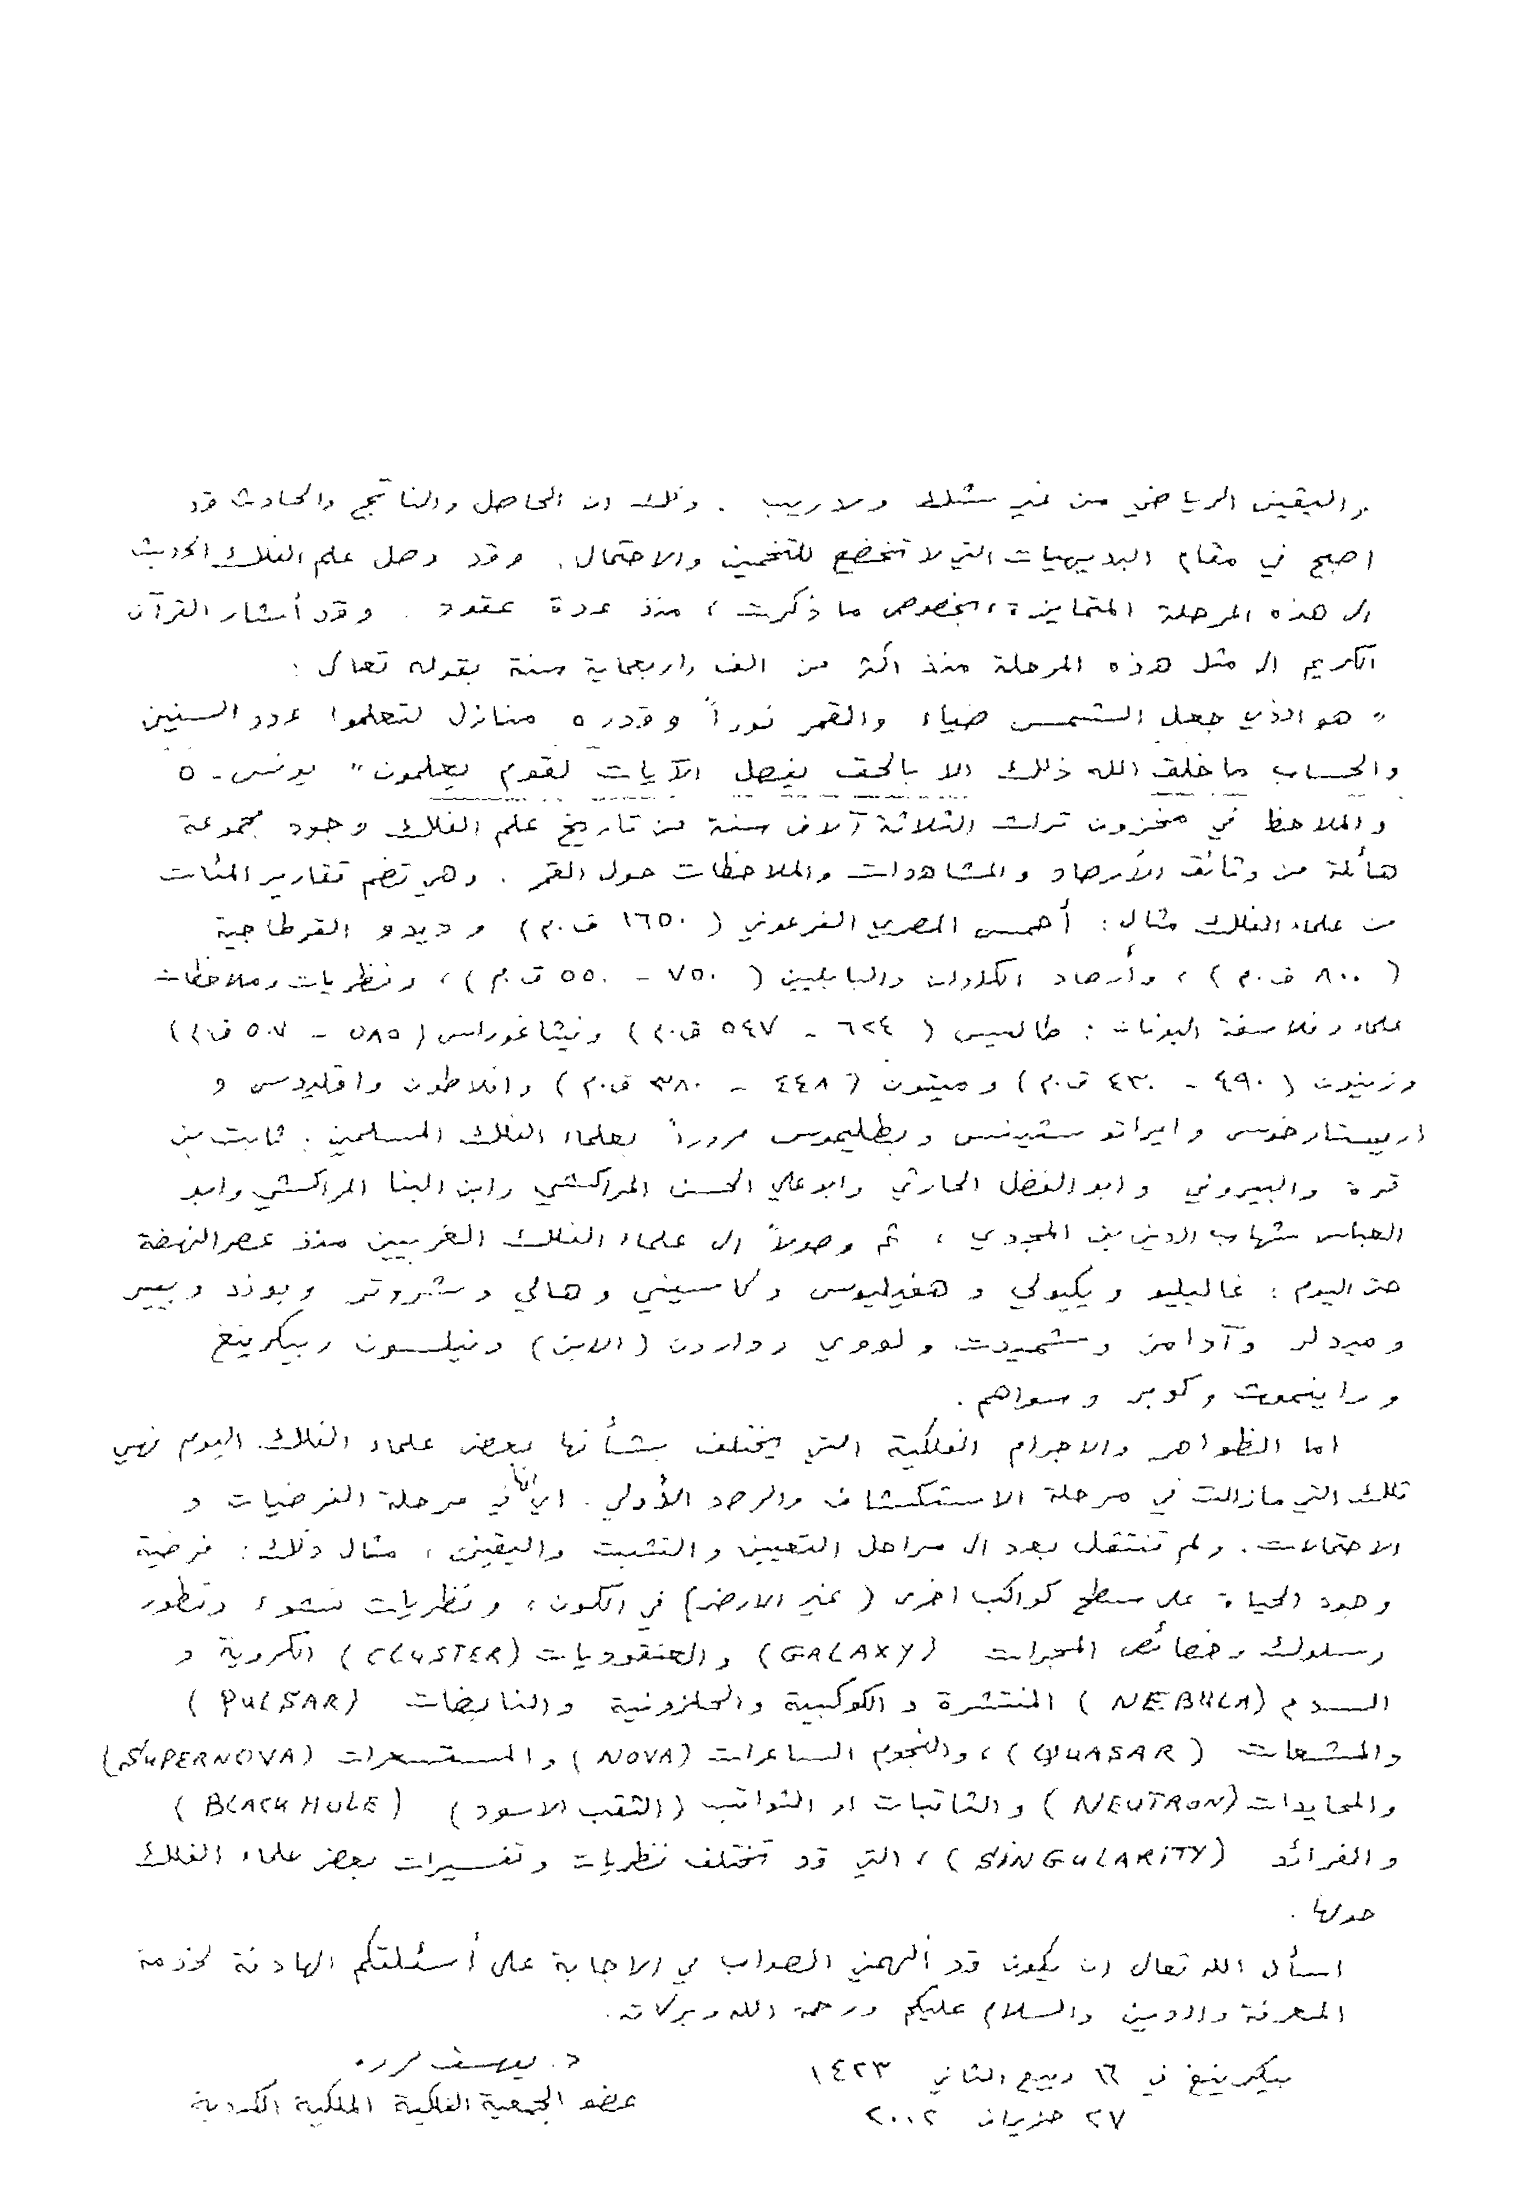 واليقين الرياضي من غير شك ولا ريب . وذلك ان الحاصل والناتج والحادث قد
اصبح في مقام البديهيات التي لا تخضع للتخمين والاحتمال . وقد وصل علم الفلك الحديث
الى هذه المرحلة المتمايزة ، بخصوص ما ذكرت ، منذ عدة عقود . وقد أشار القرآن
الكريم الى مثل هذه المرحلة منذ اكثر من الف واربعماية سنة بقوله تعالى :
" هو الذي جعل الشمس ضياء والقمر نوراً وقدره منازل لتعلموا عدد السنين
والحساب ما خلق الله ذلك الا بالحق يفصل الآيات لقوم يعلمون " يونس - ٥
والملاحظ في مخزون تراث الثلاثة آلاف سنة من تاريخ علم الفلك وجود مجموعة
هائلة من وثائق الأرصاد والمشاهدات والملاحظات حول القمر . وهي تضم تقارير المئات
من علماء الفلك مثال : أحمس المصري الفرعوني ( ١٦٥٠ ق.م ) وديدو القرطاجية
( ٨٠٠ ق.م ) ، وأرصاد الكلدان والبابليين ( ٧٥٠ - ٥٥٠ ق.م ) ، ونظريات وملاحظات
علماء وفلاسفة اليونان : طاليس ( ٦٢٤ - ٥٤٧ ق.م ) وفيثاغوراس ( ٥٨٥ - ٥٠٧ ق.م )
وزينون ( ٤٩٠ - ٤٣٠ ق.م ) وميتون ( ٤٤٨ - ٣٨٠ ق.م ) وافلاطون واقليدس و
اريستارخوس وايراتوستينس وبطليموس مروراً بعلماء الفلك المسلمين : ثابت بن
قرة والبيروني وابو الفضل الحارثي وابو علي الحسن المراكشي وابن البنا المراكشي وابو
العباس شهاب الدين بن المجدي ، ثم وصولاً الى علماء الفلك الغربيين منذ عصر النهضة
حتى اليوم : غاليليو وريكيولي وهفيليوس وكاسيني وهالي وشروتر وبوند وبيير
وميدلر وآدامز وشميدت ولووي وواردن ( الابن ) ونيلسون وبيكرينغ
وراينموت وكوبر وسواهم .
اما الظواهر والاجرام الفلكية التي يختلف بشأنها بعض علماء الفلك اليوم فهي
تلك التي مازالت في مرحلة الاستكشاف والرصد الأولي . اي انها في مرحلة الفرضيات و
الاحتمالات . ولم تنتقل بعد الى مراحل التعيين والتثبت واليقين ، مثال ذلك : فرضية
وجود الحياة على سطح كواكب اخرى ( غير الارض ) في الكون ، ونظريات نشوء وتطور
وسلوك وخصائص المجرات ( GALAXY ) والعنقوديات ( CLUSTER ) الكروية و
السدم ( NEBULA ) المنتشرة والكوكبية والحلزونية والنابضات ( PULSAR )
والمشعات ( QUASAR ) ، والنجوم الساعرات ( NOVA ) والمستسعرات ( SUPERNOVA )
والمحايدات ( NEUTRON ) والثاقبات او الثواقب ( الثقب الاسود ) ( BLACK HOLE )
والفرائد ( SINGULARITY ) ، التي قد تختلف نظريات وتفسيرات بعض علماء الفلك
حولها .
اسأل الله تعالى ان يكون قد ألهمني الصواب في الاجابة على أسئلتكم الهادفة لخدمة
المعرفة والدين والسلام عليكم ورحمة الله وبركاته .
د. يوسف مروه
عضو الجمعية الفلكية الملكية الكندية
بيكرينغ في ١٦ ربيع الثاني ١٤٢٣
٢٧ حزيران ٢٠٠٢